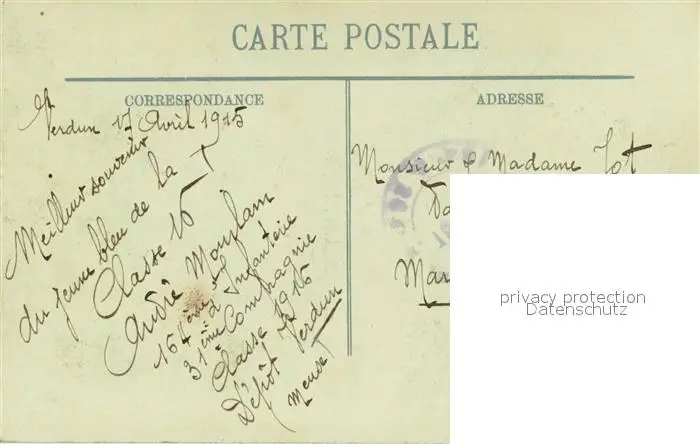 CARTE POSTALE
CORRESPONDANCE
Verdun 17 Avril 1915
Meilleur souvenir
du jeune bleu de la
Classe 16
André
164ème d'Infanterie
31ème Compagnie
Classe 1916
Dépôt Verdun
Meuse
ADRESSE
Monsieur & Madame Jot
Mar
privacy protection
Datenschutz